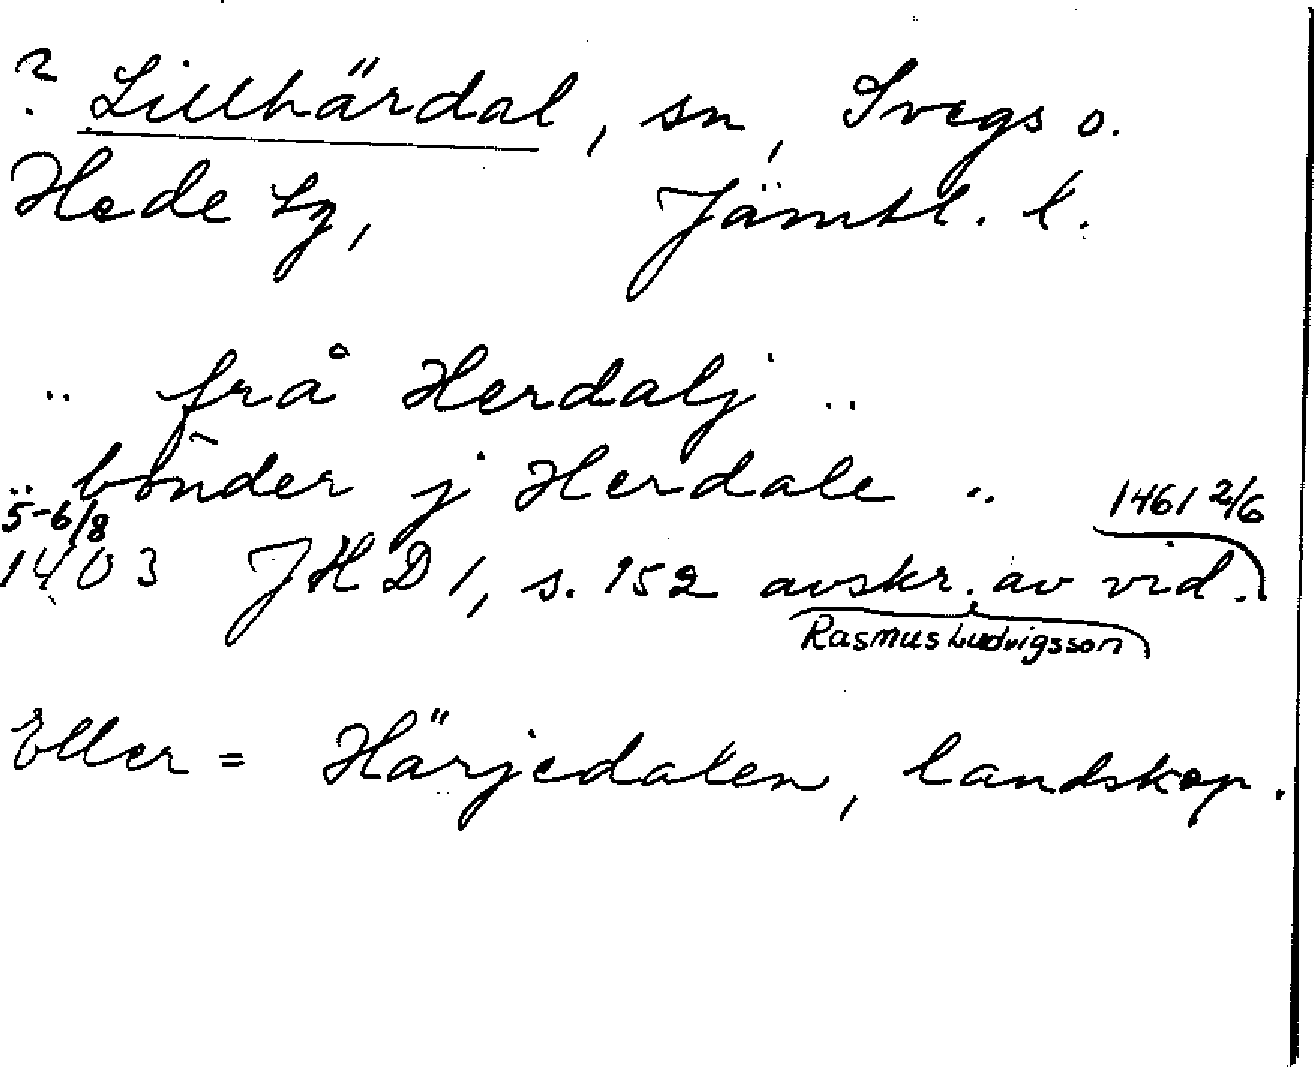 ? Lillhärdal, sn, Svegs o.
Hede tg, Jämtl. l.
.. frå Herdalj ..
.. bönder j Herdale ..
1461 2/6
5-6/8
1403 JHD 1, s. 152 avskr. av vid.
Rasmus Ludvigsson
Eller = Härjedalen, landskap.